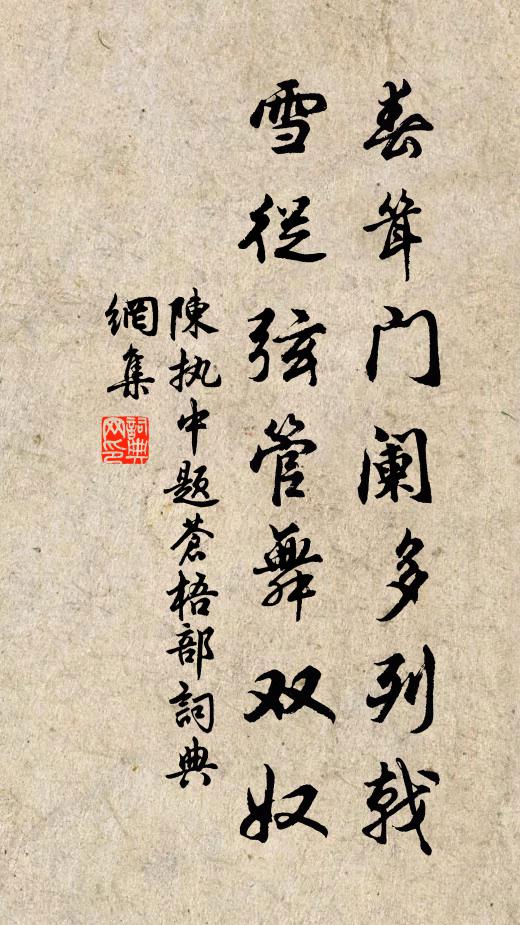 春耸门阑多列戟
雪從弦管舞双奴
陳执中题蒼梧部詞典
網集
詞典
网印